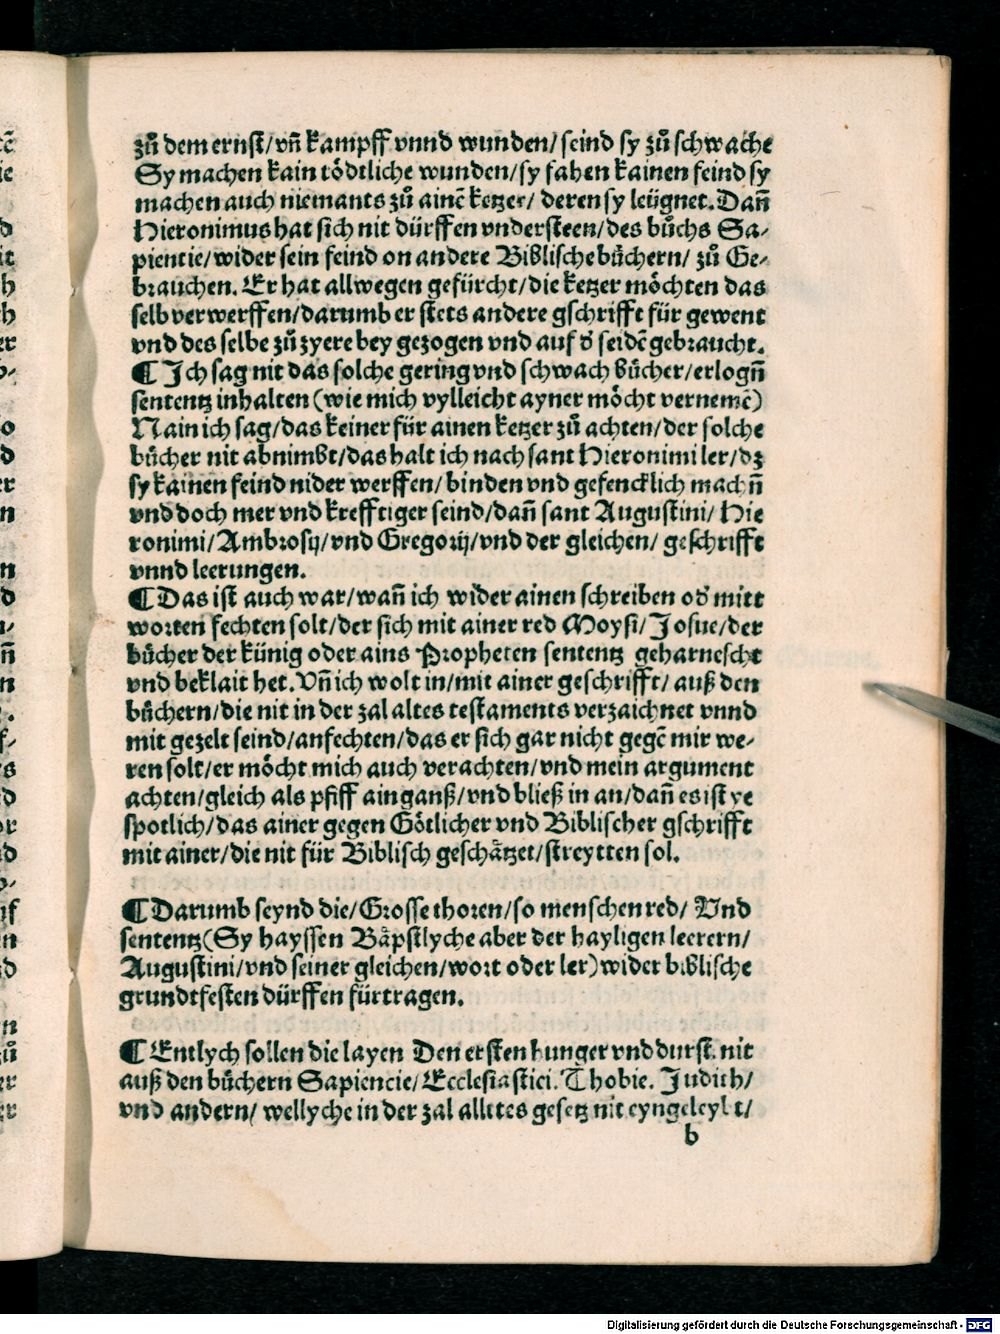 zů dem ernst/vñ kampff vnnd wunden/seind sy zů schwache
Sy machen kain tödtliche wunden/sy fahen kainen feind sy
machen auch niemants zů ainẽ ketzer/ deren sy leügnet. Dañ
Hieronimus hat sich nit dürffen vndersteen/des bůchs Sa-
pientie/wider sein feind on andere Biblische bůchern/ zů Ge-
brauchen. Er hat allwegen gefürcht/die ketzer möchten das
selb verwerffen/darumb er stets andere gschrifft für gewent
vnd des selbe zů zyere bey gezogen vnd auf d̕ seidẽ gebraucht.
¶ Ich sag nit das solche gering vnd schwach bůcher/erlogñ
sententz inhalten (wie mich vylleicht ayner möcht vernemẽ)
Nain ich sag/das keiner für ainen ketzer zů achten/der solche
bůcher nit abnimbt/das halt ich nach sant Hieronimi ler/dz
sy kainen feind nider werffen/binden vnd gefencklich machñ
vnd doch mer vnd krefftiger seind/dañ sant Augustini/ Hie
ronimi/Ambrosij/vnd Gregorij/vnd der gleichen/ geschrifft
vnnd leerungen.
¶ Das ist auch war/wañ ich wider ainen schreiben od̕ mitt
worten fechten solt/der sich mit ainer red Moysi/Josue/der
bůcher der künig oder ains Propheten sententz geharnescht
vnd beklait het. Vñ ich wolt in/mit ainer geschrifft/ auß den
bůchern/die nit in der zal altes testaments verzaichnet vnnd
mit gezelt seind/anfechten/das er sich gar nicht gegẽ mir we-
ren solt/er möcht mich auch verachten/vnd mein argument
achten/gleich als pfiff ain ganß/vnd bließ in an/dañ es ist ye
spotlich/das ainer gegen Götlicher vnd Biblischer gschrifft
mit ainer/die nit für Biblisch geschätzet/streytten sol.
¶ Darumb seynd die/Grosse thoren/so menschen red/ Vnd
sententz(Sy hayssen Bäpstlyche aber der hayligen leerern/
Augustini/vnd seiner gleichen/wort oder ler)wider biblische
grundtfesten dürffen fürtragen.
¶ Entlych sollen die layen Den ersten hunger vnd durst. nit
auß den bůchern Sapiencie/Ecclesiastici. Thobie. Judith/
vnd andern/ wellyche in der zal alltes gesetz nit eyngeleybt/
b
Digitalisierung gefördert durch die Deutsche Forschungsgemeinschaft - DFG